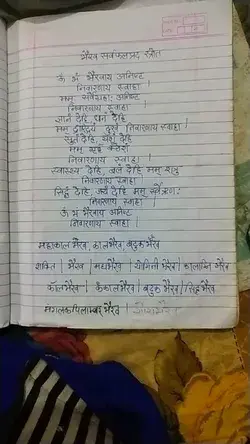 भैरव सर्वफलप्रद स्तोत्र
ॐ भं भैरवाय अनिष्ट
निवारणाय स्वाहा ।
मम सर्वग्रहाः अनिष्ट
निवारणाय स्वाहा ।
ज्ञानं देहि धनं देहि
मम दारिद्र्य दुःखं निवारणाय स्वाहा ।
सुतं देहि, यशं देहि
मम गृह क्लेशं
निवारणाय स्वाहा ।
स्वास्थ्यं देहि, बलं देहि मम शत्रु
निवारणाय स्वाहा
सिद्धं देहि, जयं देहि मम सर्वऋणः
निवारणाय स्वाहा ।
ॐ भं भैरवाय अनिष्ट
निवारणाय स्वाहा ।
महाकाल भैरव, काल भैरव, बटुक भैरव
भैरव । भैरव । कालाग्नि भैरव
कॉल भैरव । कंकाल भैरव । बटुक भैरव । सिद्ध भैरव
भैरव ।